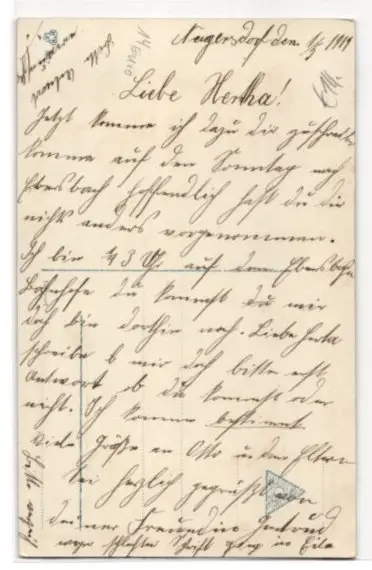 Neugersdorf den 1/3 1919
Liebe Hertha!
Jetzt komme ich dazu dir zuschreiben
komme auf den Sonntag nach
Ebersbach hoffendlich hast du dir
nicht anders vorgenommen.
Ich bin ¾ 3 Uhr auf dem Ebersbahn
Bahnhofe du kommst du mir
doch bis dorthin nach. Liebe Herta
schreibe mir doch bitte erst
Antwort ob du kommst oder
nicht. Ich komme bestimmt.
Viele Grüße an Otto und den Eltern
Sei herzlich gegrüßt von
deiner Freundin Gertrud
wegen schlechter Schrift ging in Eile
Bitte
Antwort